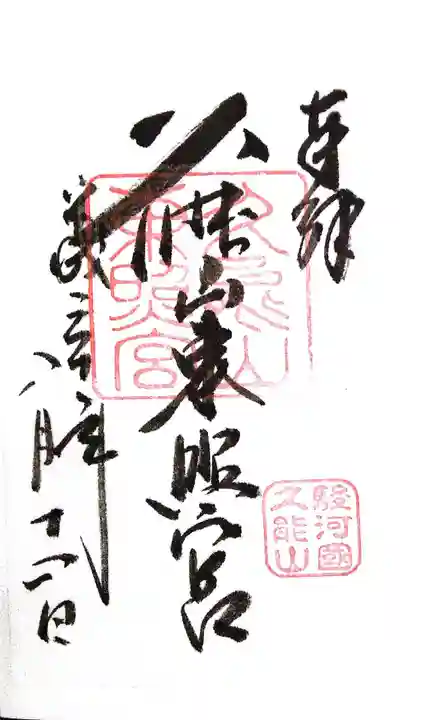 奉拝
久能山東照宮
八月十一日
久能山
東照宮
駿河國
久能山